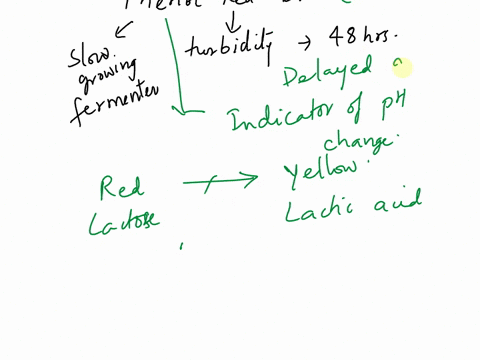 Phenol Red
Slow growing fermenter
turbidity → 48 hrs.
Delayed
Indicator of pH change.
Red → Yellow.
Lactose Lactic acid